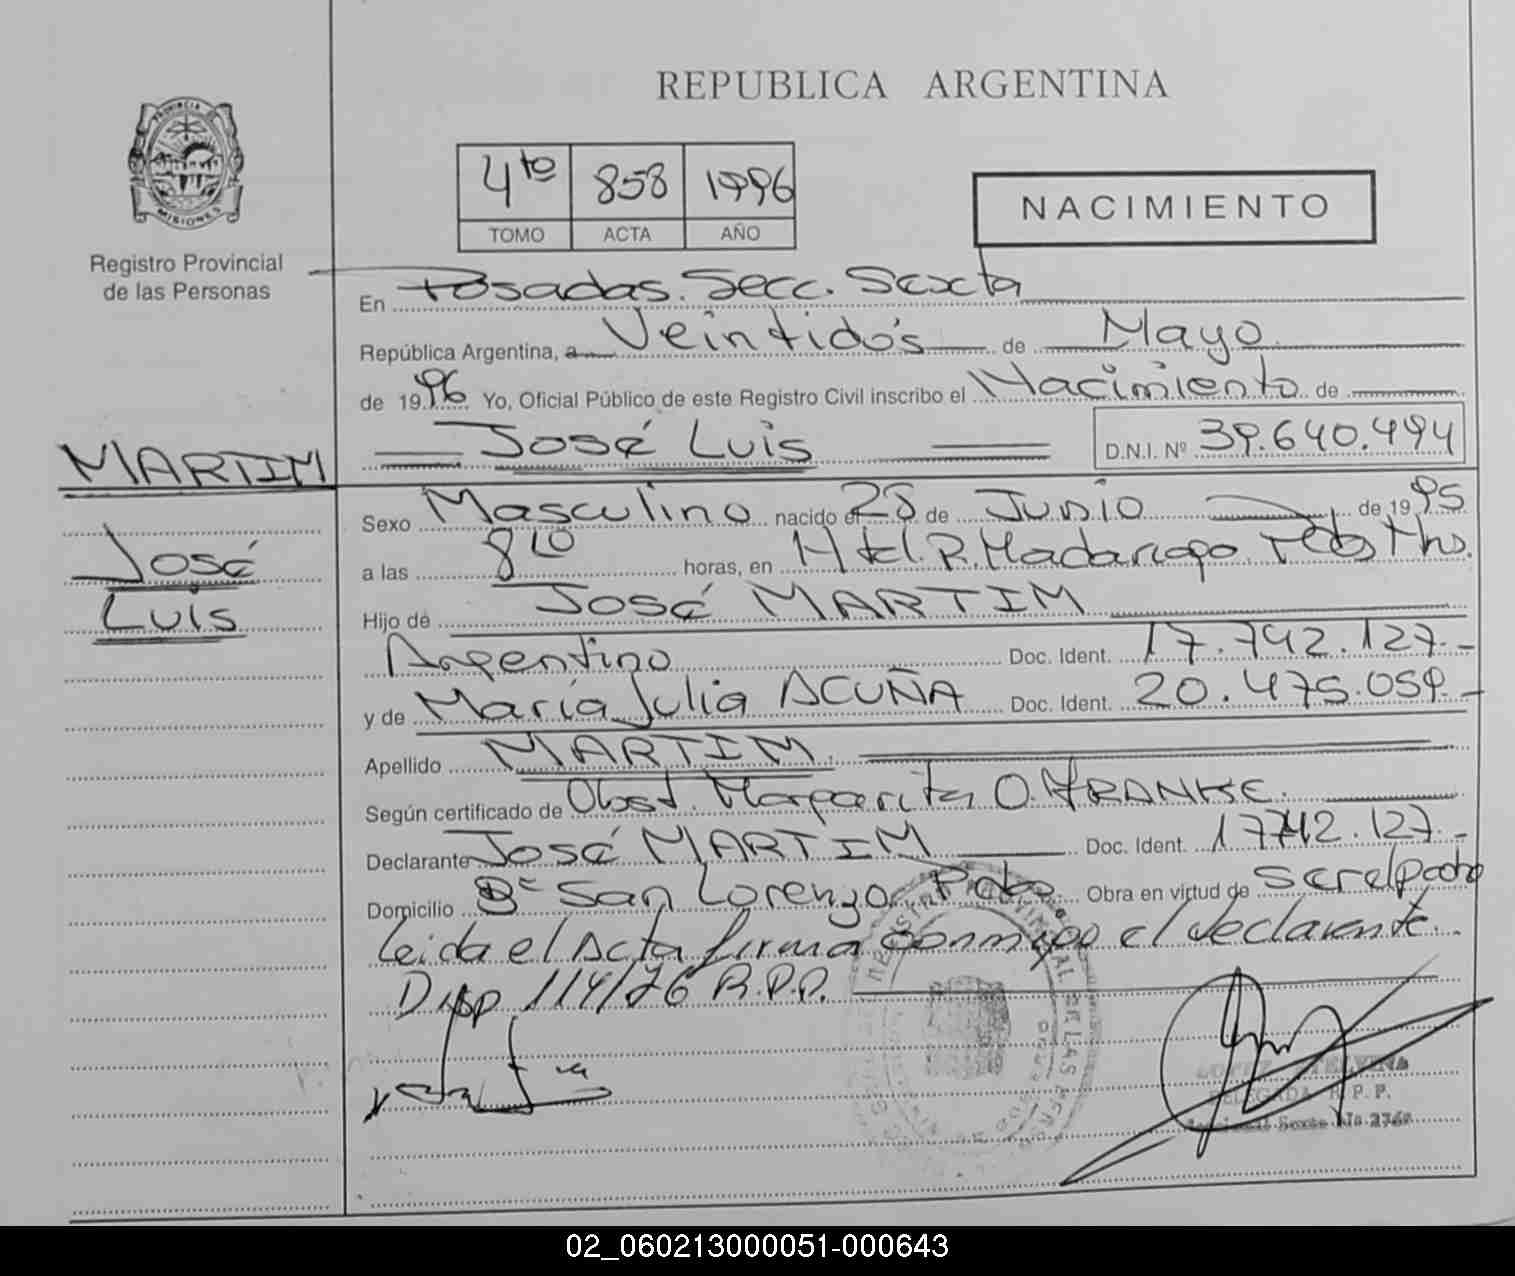 REPUBLICA ARGENTINA
PROVINCIA
MISIONES
Registro Provincial
de las Personas
4to 858 1996
TOMO ACTA AÑO
NACIMIENTO
En Posadas. Secc. Sexta
República Argentina, a Veintidós de Mayo
de 1996 Yo, Oficial Público de este Registro Civil inscribo el Nacimiento de
José Luis D.N.I. Nº 39.640.494
MARTIM
José
Luis
Sexo Masculino nacido el 28 de Junio de 1995
a las 8 10 horas, en Htal. R. Madariaga
Hijo de José MARTIM
Argentino Doc. Ident. 17.742.127.-
y de María Julia ACUÑA Doc. Ident. 20.475.059.-
Apellido MARTIM.
Según certificado de Obst. Margarita O. FRANKE.
Declarante José MARTIM Doc. Ident. 17742.127.-
Domicilio Bº San Lorenzo. Pdas. Obra en virtud de
Leida el Acta firma conmigo el declarante.
Disp 114/76 R.P.P.
LOPEZ ETELVINA
DELEGADA R.P.P.
Seccional Sexta
02_060213000051-000643